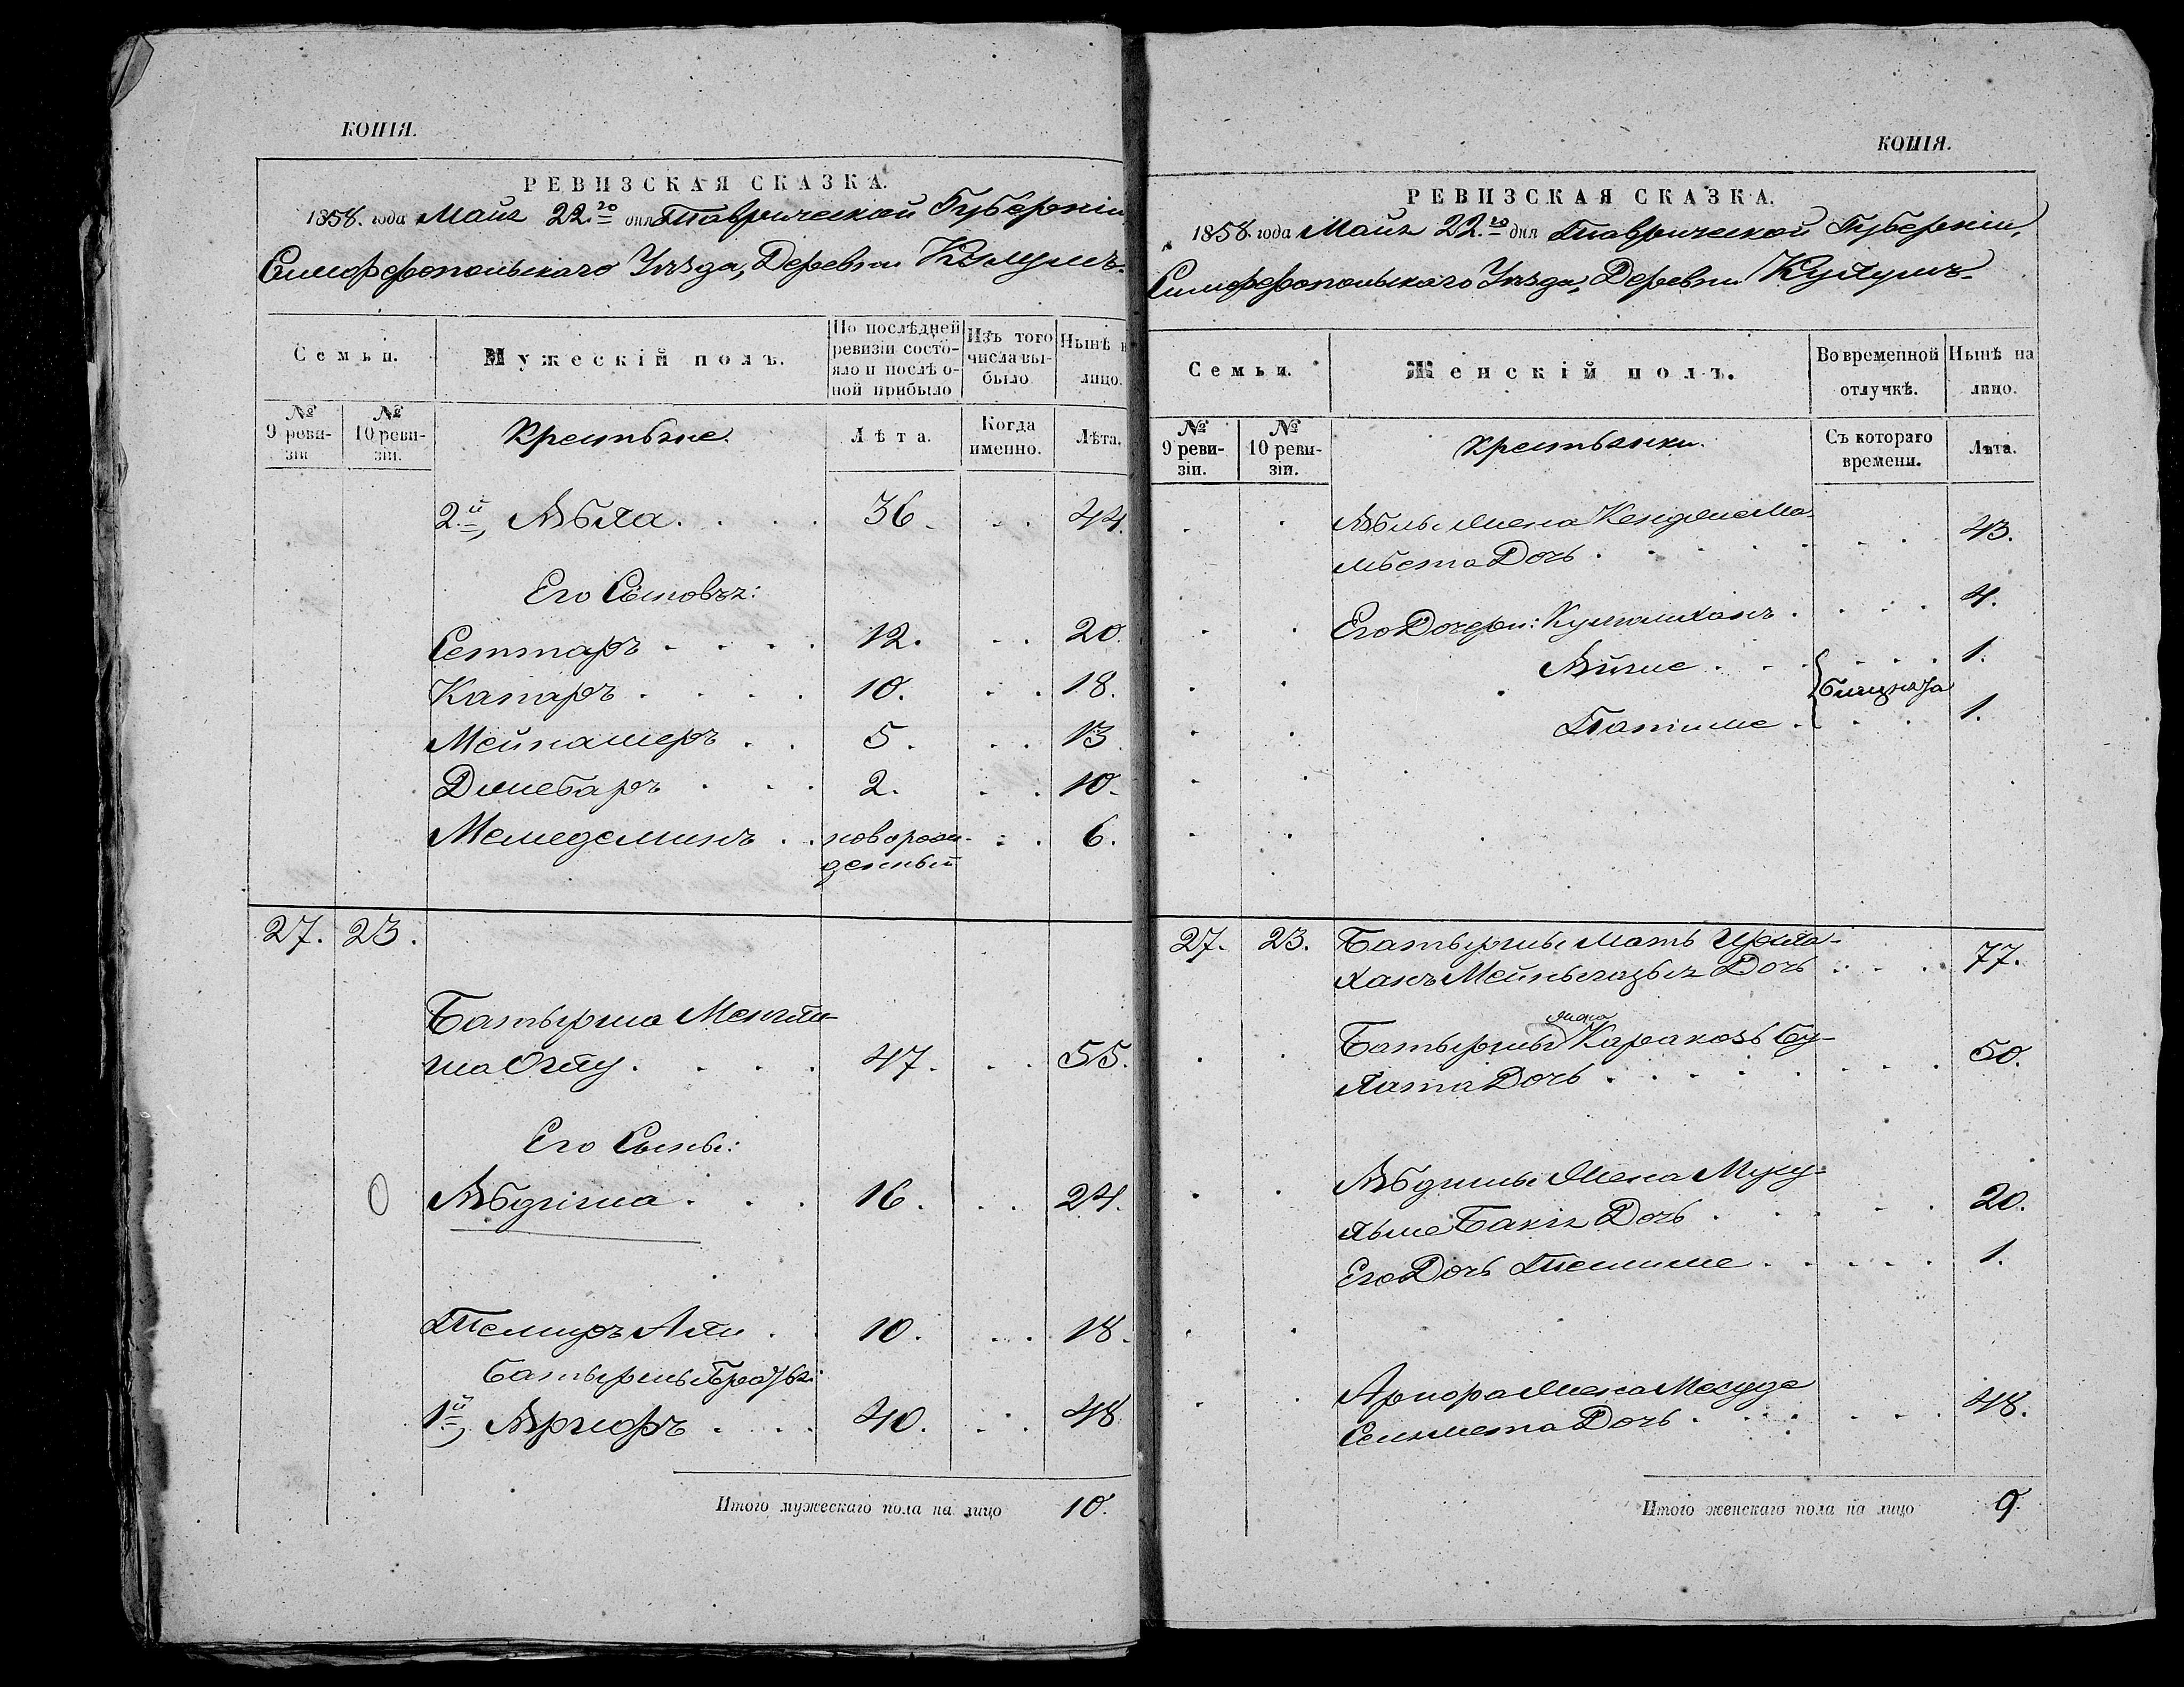 КОПІЯ.
РЕВИЗСКАЯ СКАЗКА.
1858. года Маія 22.го дня Таврической Губерніи
Симферопольскаго Уѣзда, Деревни
Семьи.
Мужескій полъ.
По послѣдней ревизіи состояло и послѣ оной прибыло
Изъ того числа выбыло
Нынѣ н
лицо.
№ 9 ревизіи
№ 10 ревизіи.
Крестьяне.
Лѣта.
Когда именно.
Лѣта.
2.й, Абла. 36. 44.
Его Сыновья:
Сеттаръ 12. 20.
Капаръ 10. 18.
Мейнашеръ 5. 13
Джебаръ 2. 10.
Мемедеминъ новорож- 6.
денный
27. 23.
Батырша Менгли-
ша Оглу. 47. 55.
Его Сыны:
Абдиша 16. 24.
Темиръ Али 10. 18.
Батырши Братья:
1й, Аргоръ 40. 48
Итого мужескаго пола на лицо 10.
КОПІЯ.
РЕВИЗСКАЯ СКАЗКА.
1858. года Маія 22.го дня Таврической Губерніи,
Симферопольскаго Уѣзда, Деревни
Семьи.
Женскій полъ.
Во временной отлучкѣ.
Нынѣ на лицо.
№ 9 ревизіи.
№ 10 ревизіи.
Крестьянки.
Съ котораго времени.
Лѣта.
Аблы Жена
Дочь 43.
Его Дочери: 4.
Айше 1.
близнеца
Патиме 1.
27. 23. Батырши Мать
Дочь 77.
жена
Батырши Каракозъ Бу-
лата Дочь 50.
Абдиши Жена
Бакія Дочь 20.
Его Дочь 1.
Аргора Жена
Сеинмета Дочь 48.
Итого женскаго пола на лицо 9.